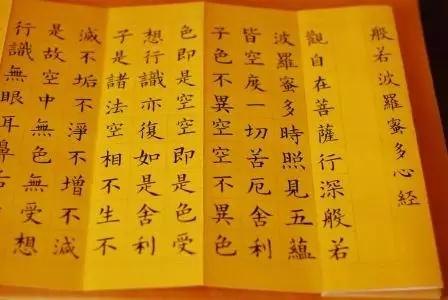 般若波羅蜜多心経
觀自在菩薩行深般若
波羅蜜多時照見五蘊
皆空度一切苦厄舍利
子色不異空空不異色
色即是空空即是色受
想行識亦復如是舍利
子是諸法空相不生不
滅不垢不淨不增不減
是故空中無色無受想
行識無眼耳鼻舌